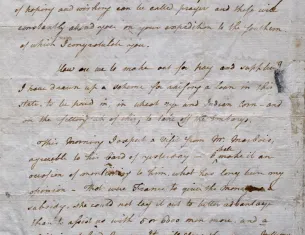 of hoping and wishing can be called prayer and they will
constantly attend you on your expedition to the southern
of which I congratulate you.
How are we to make out for pay and supplies?
I have drawn up a scheme for raising a loan in this
state, to be paid in in wheat rye and Indian Corn - and
in the
This morning I expect a visit from Mr. Marbois,
agreeable to his card of yesterday - I shall make it an
occasion of mentioning to him, what has long been my
opinion - that were France to give the
subsidy, she could not lay it out to better advantage
than to assist us with 8 or 10000 men more, and a